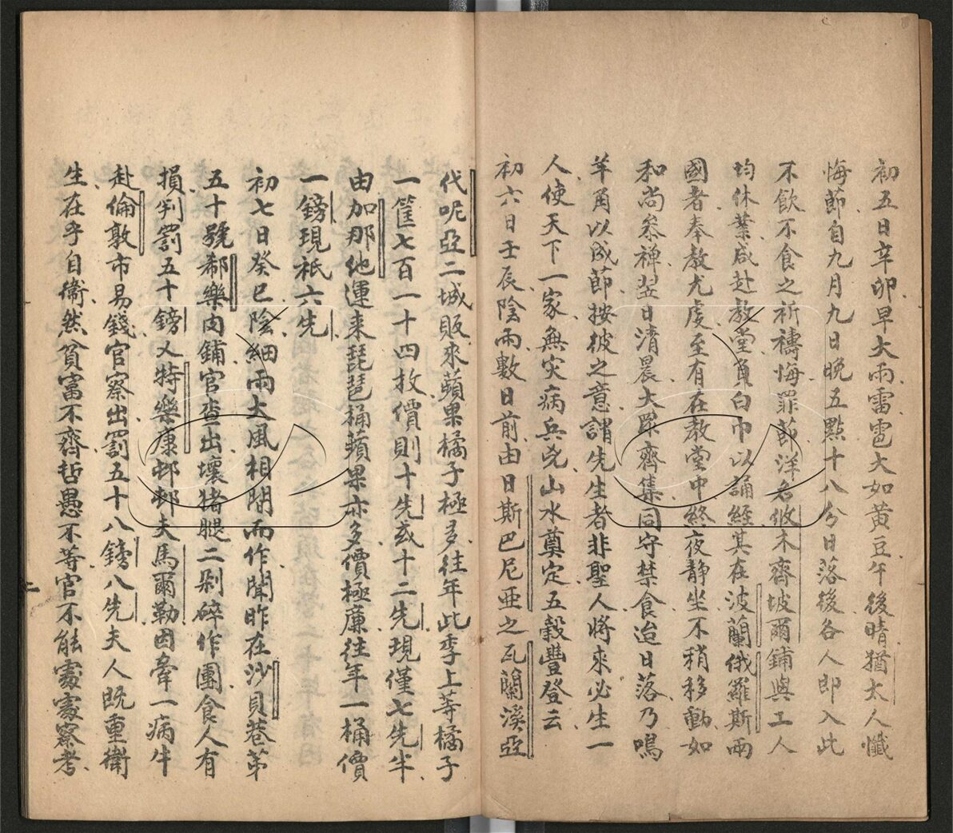 初五日辛卯早大雨雷雹大如黃豆午後晴猶太人懺
悔節自九月九日晚五點十八分日落後各人即入此
不飲不食之祈禱悔罪節洋名攸木齊坡爾鋪與工人
均休業咸赴教堂負白巾以誦經其在波蘭俄羅斯兩
國者奉教尤虔至有在教堂中終夜静坐不稍移動如
和尚叅禅翌日清晨大眾齊集同守禁食迨日落乃鳴
羊角以成節按彼之意謂先生者非聖人將來必生一
人使天下一家無灾病兵兇山水奠定五穀豐登云
初六日壬辰陰雨數日前由日斯巴尼亞之瓦蘭溪亞
代呢亞二城販來蘋果橘子極多往年此季上等橘子
一筐七百一十四枚價則十先或十二先現僅七先半
由加那他運來琵琶桶蘋果亦多價極廉往年一桶價
一鎊現祇六先
初七日癸巳陰細雨大風相間而作聞昨在沙貝巷第
五十號鄰樂肉鋪官查出壞猪腿二剁碎作團食人有
損判罰五十鎊又特樂康邨邨夫馬爾勒因牽一病牛
赴倫敦市易錢官察出罰五十八鎊八先夫人既重衛
生在乎自衛然貧富不齊哲愚不等官不能處處察考